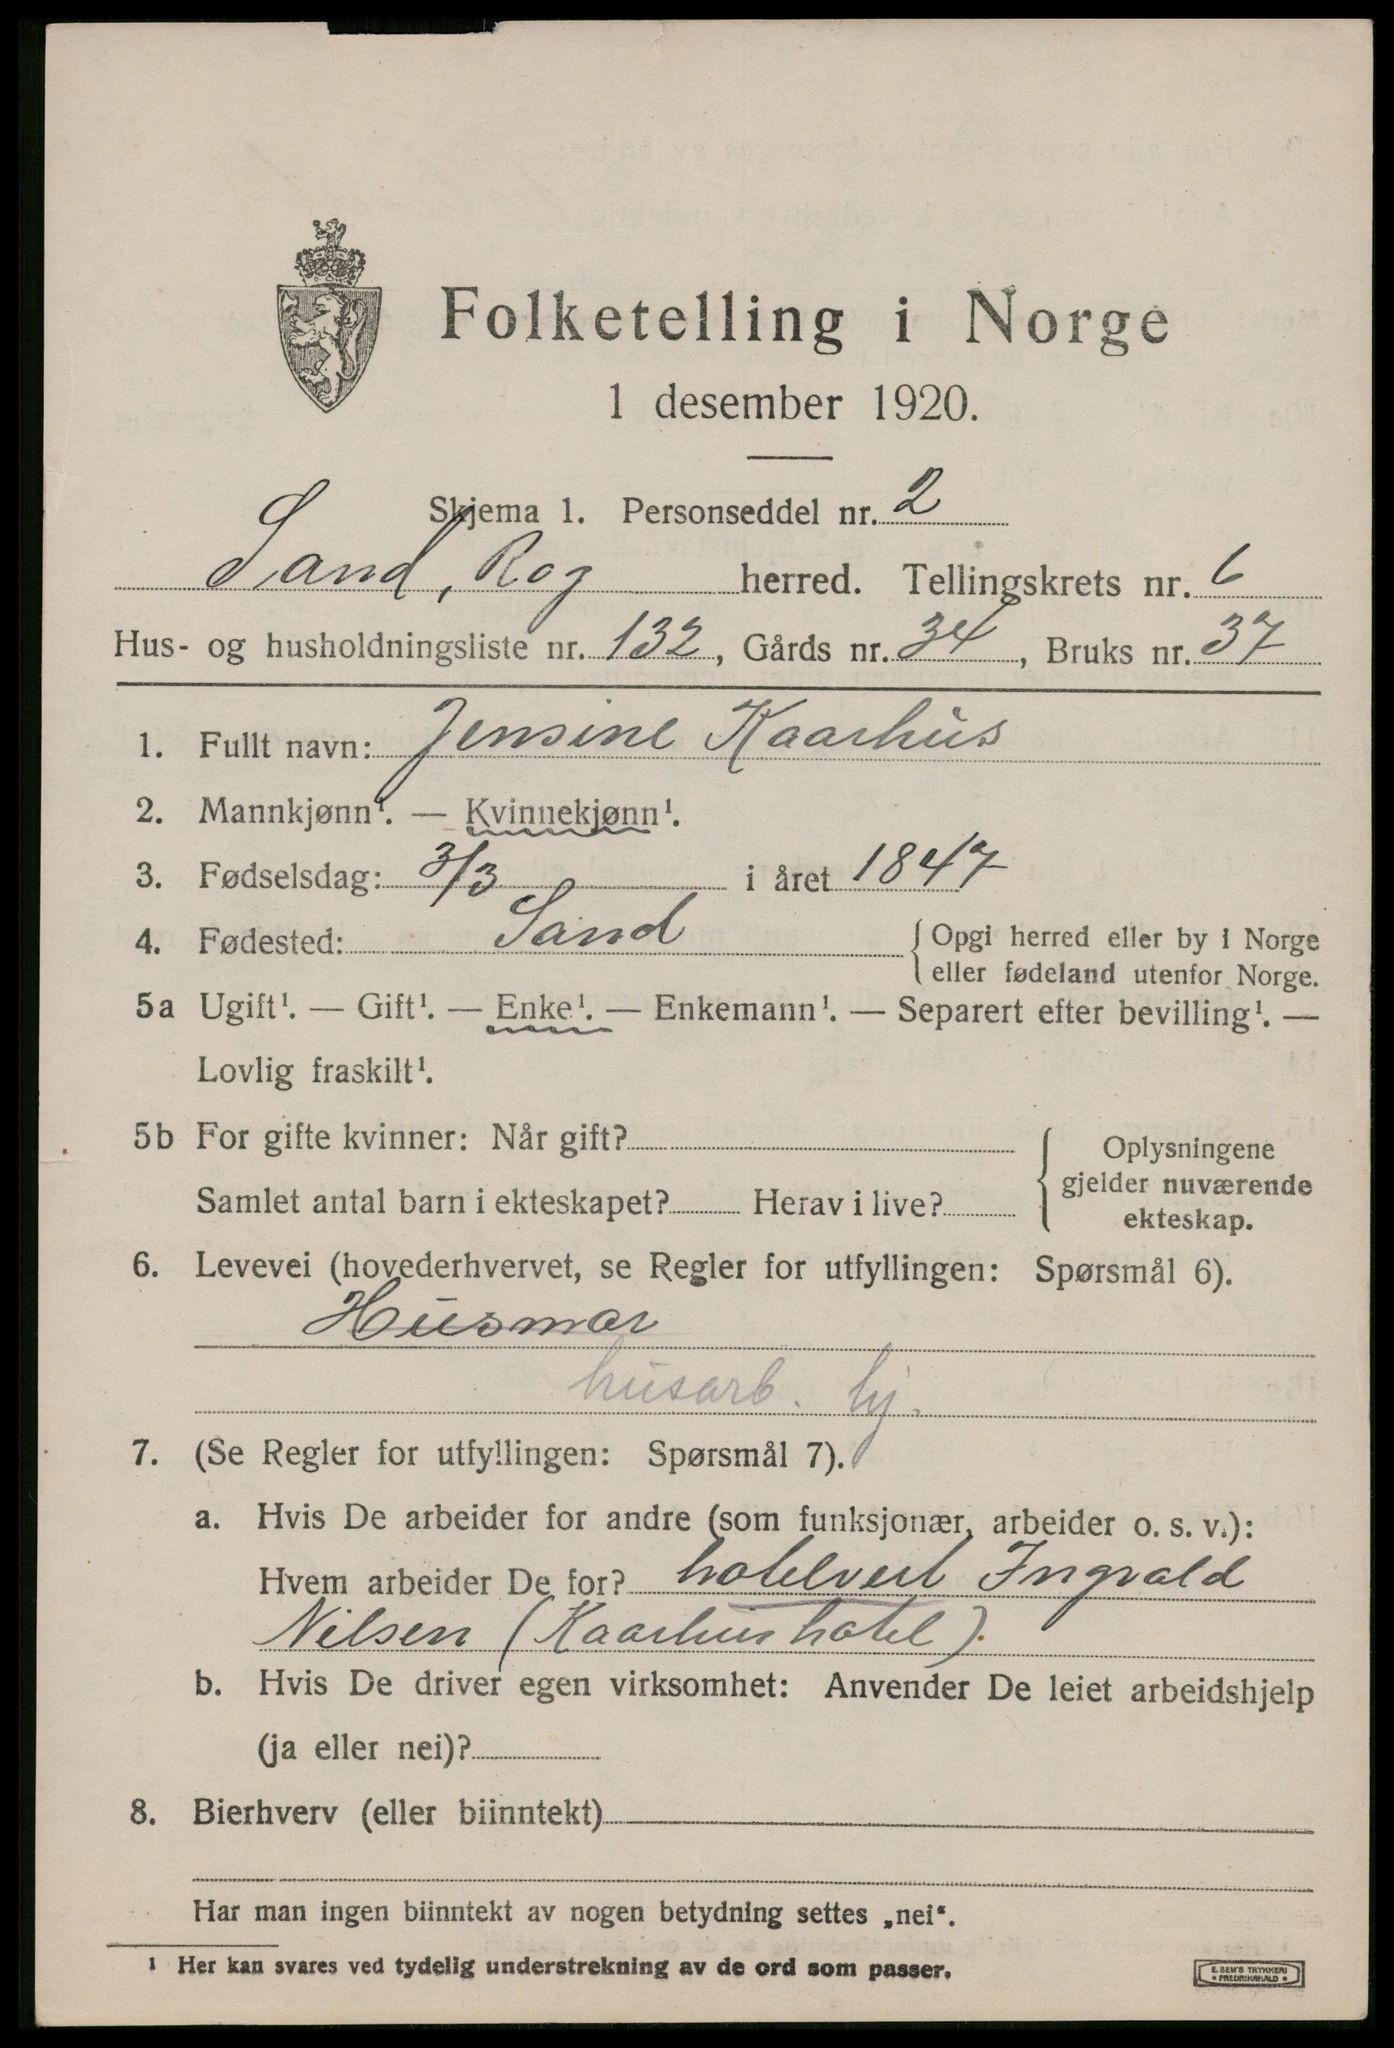 Folketelling i Norge
1 desember 1920.
Skjema 1. Personseddel nr. 2
Sand, Rog herred. Tellingskrets nr. 6
Hus- og husholdningsliste nr. 132, Gårds nr. 34, Bruks nr. 37
1. Fullt navn: Jensine Kaarhus
2. Mannkjønn¹. — Kvinnekjønn¹.
3. Fødselsdag: 3/3 i året 1847
4. Fødested: Sand { Opgi herred eller by i Norge
eller fødeland utenfor Norge.
5a Ugift¹. — Gift¹. — Enke¹. — Enkemann¹. — Separert efter bevilling¹. —
Lovlig fraskilt¹.
5b For gifte kvinner: Når gift?
Samlet antal barn i ekteskapet? Herav i live?
Oplysningene
gjelder nuværende
ekteskap.
6. Levevei (hovederhvervet, se Regler for utfyllingen: Spørsmål 6).
Husmor
husarb. hj.
7. (Se Regler for utfyllingen: Spørsmål 7).
a. Hvis De arbeider for andre (som funksjonær, arbeider o. s. v.):
Hvem arbeider De for? hotelvert Ingvald
Nilsen (Kaarhus hotel).
b. Hvis De driver egen virksomhet: Anvender De leiet arbeidshjelp
(ja eller nei)?
8. Bierhverv (eller biinntekt)
Har man ingen biinntekt av nogen betydning settes „nei“.
¹ Her kan svares ved tydelig understrekning av de ord som passer.
E. SEM'S TRYKKERI
• FREDRIKSHALD •